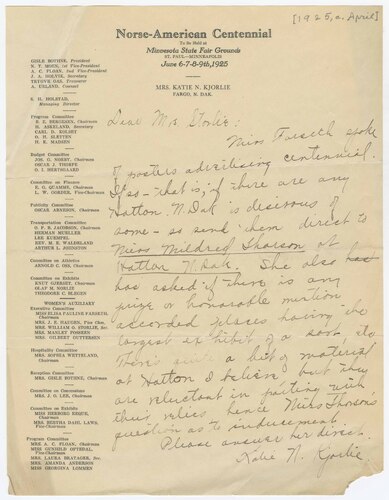 [1925, a. April]
Norse-American Centennial
To Be Held at
Minnesota State Fair Grounds
ST. PAUL—MINNEAPOLIS
June 6-7-8-9th, 1925
MRS. KATIE N. KJORLIE
FARGO, N. DAK.
GISLE BOTHNE, President
N. T. MOEN, 1st Vice-President
A. C. FLOAN, 2nd Vice-President
J. A. HOLVIK, Secretary
TRYGVE OAS, Treasurer
A. UELAND, Counsel
S. H. HOLSTAD,
Managing Director
Program Committee
S. E. BERGESEN, Chairman
H. ASKELAND, Secretary
CARL D. KOLSET
O. H. SLETTEN
H. K. MADSEN
Budget Committee
JOS. G. NORBY, Chairman
OSCAR J. THORPE
O. I. HERTSGAARD
Committee on Finance
E. G. QUAMME, Chairman
L. W. GORDER, Vice-Chairman
Publicity Committee
OSCAR ARNESON, Chairman
Transportation Committee
O. P. B. JACOBSON, Chairman
HERMAN MUELLER
LEE KUEMPEL
REV. M. E. WALDELAND
ARTHUR L. JOHNSTON
Committee on Athletics
ARNOLD C. OSS, Chairman
Committee on Exhibits
KNUT GJERSET, Chairman
OLAF M. NORLIE
THEODORE C. BLEGEN
WOMEN'S AUXILIARY
MISS ELISA PAULINE FARSETH,
Chairman
MRS. J. E. HAUGEN, Vice Chm.
MRS. WILLIAM O. STORLIE, Sec.
MRS. MANLEY FOSSEEN
MRS. GILBERT GUTTERSEN
Hospitality Committee
MRS. SOPHIA WETTELAND,
Chairman
Reception Committee
MRS. GISLE BOTHNE, Chairman
Committee on Concessions
MRS. J. O. LEE, Chairman
Committee on Exhibits
MISS HERBORG REQUE,
Chairman
MRS. BERTHA DAHL LAWS,
Vice-Chairman
Program Committee
MRS. A. C. FLOAN, Chairman
MISS GUNHILD OPTEDAL,
Vice-Chairman
MRS. LAURA BRATAGER, Sec.
MRS. AMANDA ANDERSON
MISS GEORGINA LOMMEN
Dear Mrs Storlie:
Miss Farseth spoke
of posters advertising centennial.
If so - that is, if there are any
Hatton, N. Dak is desirous of
some - so send them direct to
Miss Mildred Thorson at
Hatton N. Dak. She also has
has asked if there is any
prize or honorable mention
accorded places having the
largest exhibit of a sort, etc
There quite a bit of material
at Hatton I believe but they
are reluctant in parting with
their relics hence Miss Thorson's
question as to inducement.
Please answer her direct.
Katie N. Kjorlie